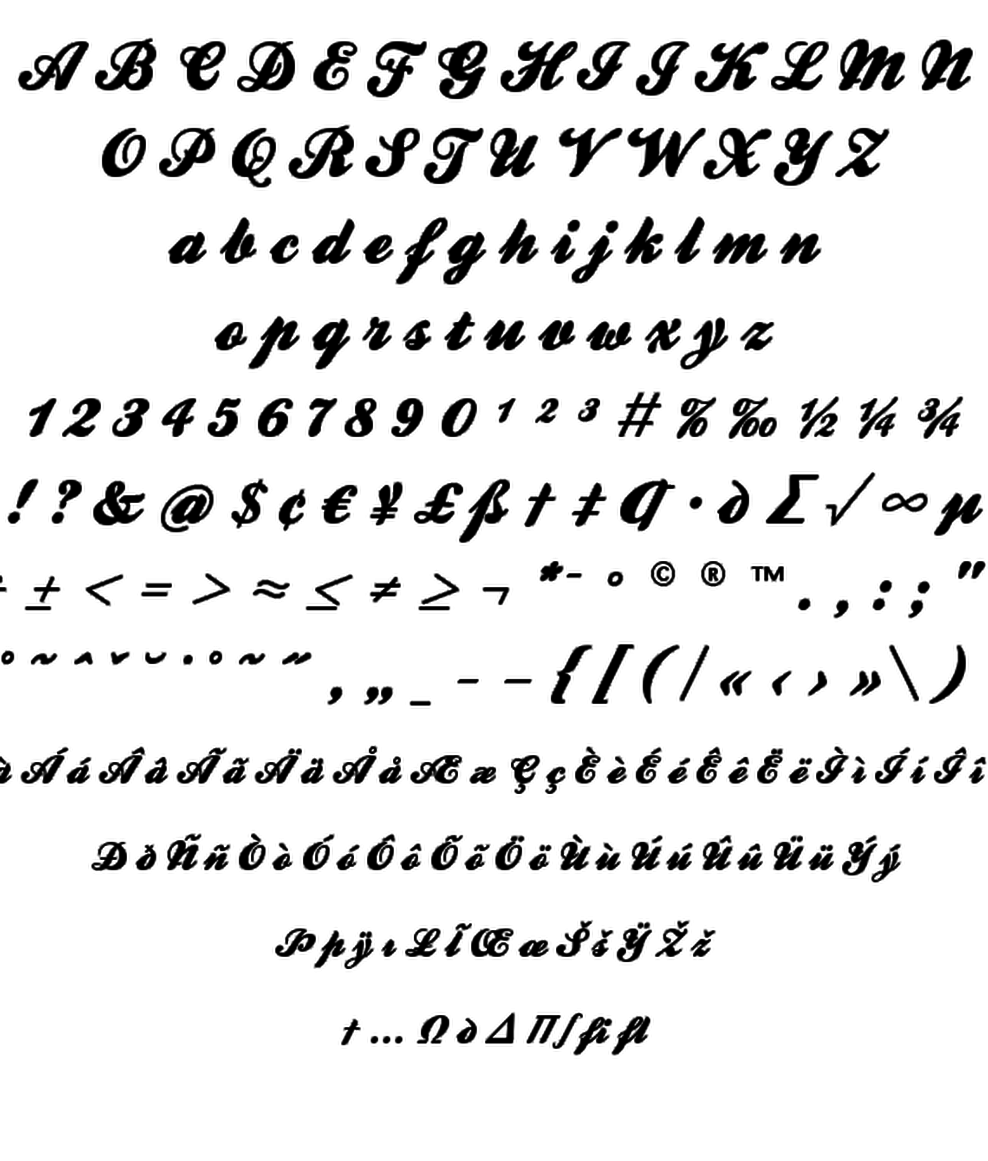 A B C D E F G H I J K L M N
O P Q R S T U V W X Y Z
a b c d e f g h i j k l m n
o p q r s t u v w x y z
1 2 3 4 5 6 7 8 9 0 ¹ ² ³ # % ‰ ½ ¼ ¾
! ? & @ $ ¢ € ¥ £ ß † ‡ ¶ · ∂ Σ √ ∞ µ
± < = > ≈ ≤ ≠ ≥ ¬ * - º © ® ™ . , : ; "
° ~ ^ ˇ ˘ ˙ ˚ ˜ ˝ ‚ „ _ - – { [ ( / « ‹ › » \ )
à Á á Â â Ã ã Ä ä Å å Æ æ Ç ç È è É é Ê ê Ë ë Ì ì Í í Î î
Ð ð Ñ ñ Ò ò Ó ó Ô ô Õ õ Ö ö Ù ù Ú ú Û û Ü ü Ý ý
Þ þ ÿ ı Ł Ĩ Œ œ Š š Ÿ Ž ž
† … Ω ∂ Δ Π ∫ fi fl